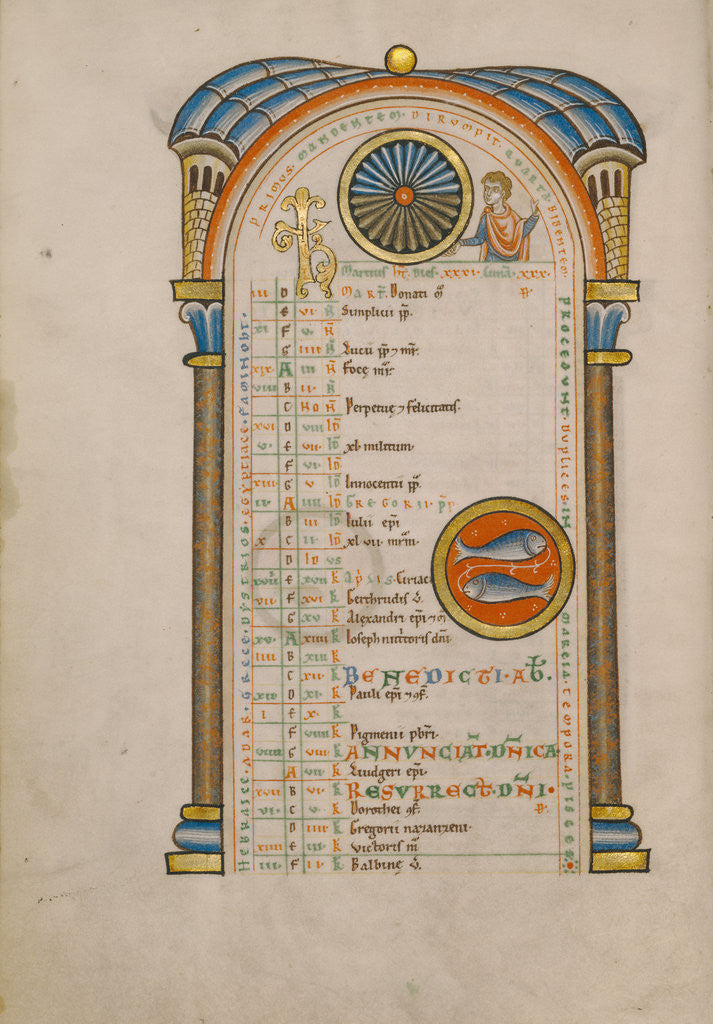 PRIMUS. MANDENTEM. DIRUMPIT. QUARTA. BIBENTEM.
KL
Martius ht. Dies. xxxi. Luna. xxx.
iii D MART. Donati m̅
E vi N Simplicii pp̅.
xi F v N
G iiii N Lucii pp̅ ⁊ mr̅.
xix A iii N Focę mr̅.
viii B ii N
C NON Perpetuę ⁊ felicitatis.
xvi D viii ID
v E vii ID xl. militum.
F vi ID
xiii G v ID Innocentii pp̅.
ii A iiii ID GREGORII. pp̅
B iii ID Iulii ep̅i
x C ii ID xl vii mr̅m.
D ID US
xviii E xvii K Ap̅lis. Ciriac
vii F xvi K Gerthrudis v̅.
G xv K Alexandri ep̅i ⁊ m̅
xv A xiiii K Ioseph nutritoris dn̅i.
iiii B xiii K
C xii K BENEDICTI. AB̅.
xii D xi K Pauli ep̅i ⁊ cf̅.
i E x K
F viiii K Pigmenii pb̅ri.
viiii G viii K ANNUNCIAT̅. DN̅ICA
A vii K Liudgeri ep̅i.
xvii B vi K RESURRECT̅. DN̅I.
vi C v K Dorothei cf̅.
D iiii K Gregorii nazanzeni.
xiiii E iii K Victoris m̅
iii F ii K Balbinę v̅.
HEBRAICE. ADAR. GRECE. DYSTRIOS. EGYPTIACE. FAMINOHT.
PROCEDUNT. DUPLICES. IN MARCIA. TEMPORA. PISCES.